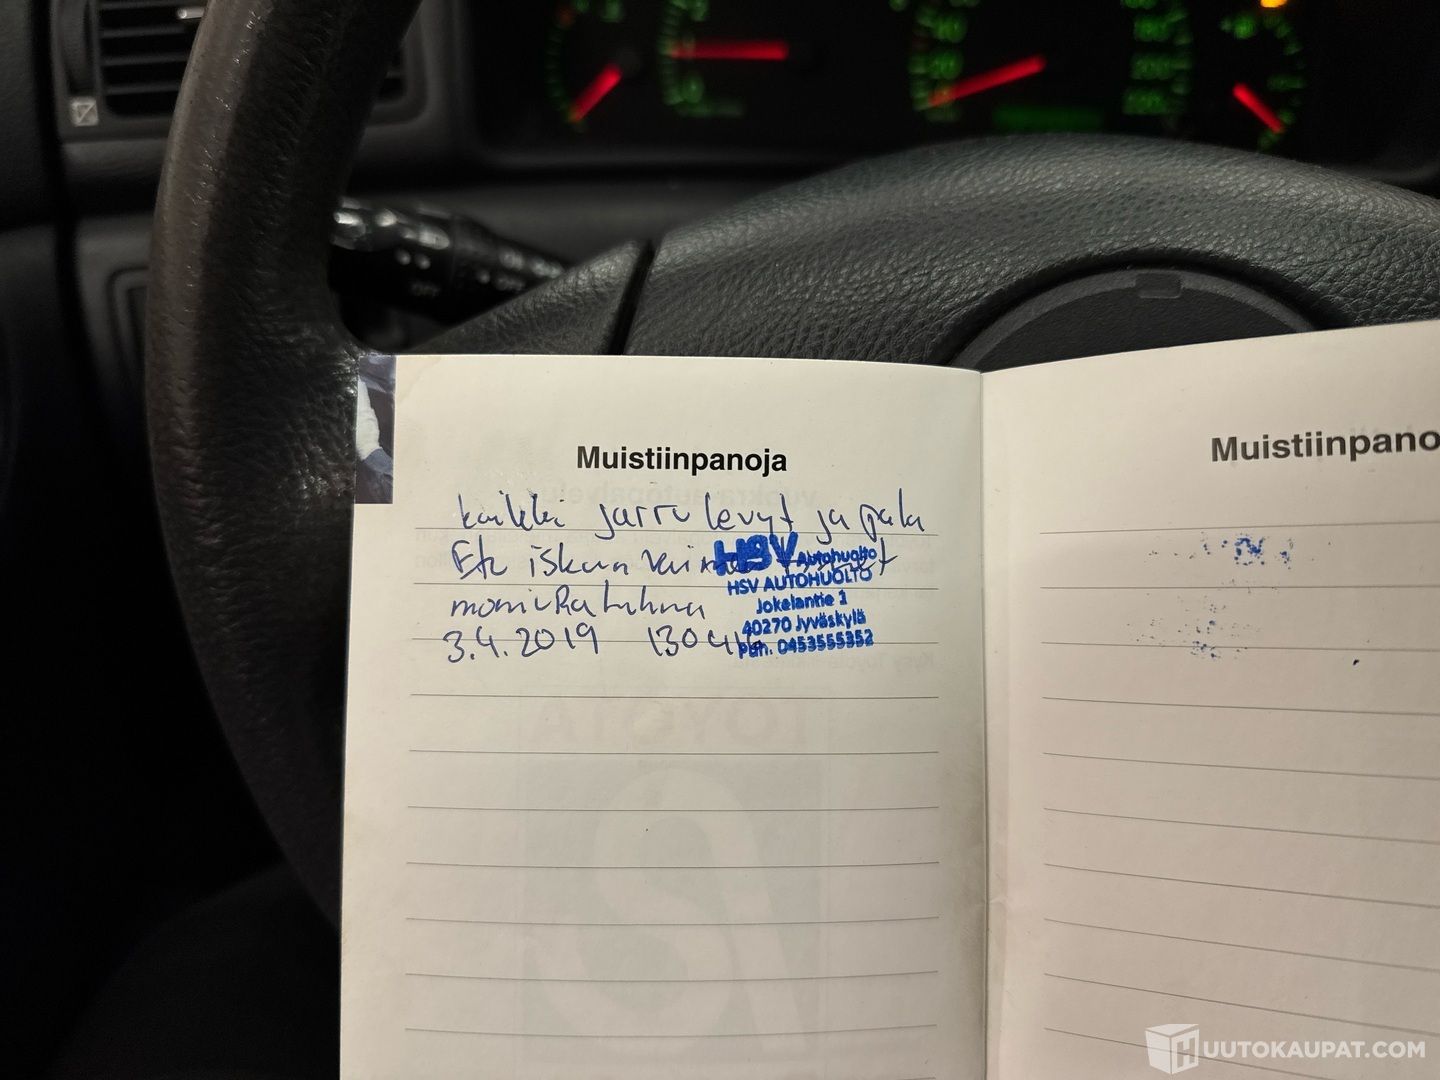 Muistiinpanoja
kaikki jarru levyt ja pala
Etu iskun
moniurahihna
3.4.2019 130416
HSV Autohuolto
HSV AUTOHUOLTO
Jokelantie 1
40270 Jyväskylä
Puh. 0453555352
Muistiinpano
OFF
HUUTOKAUPAT.COM